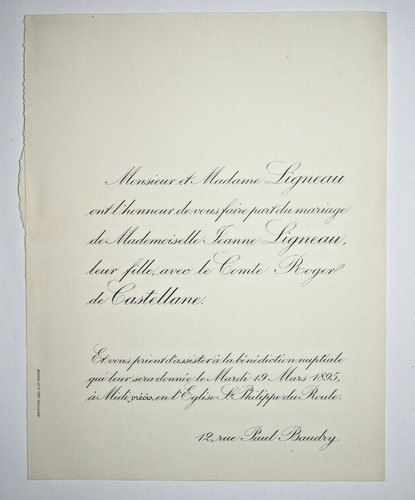 Monsieur et Madame Ligneau
ont l'honneur de vous faire part du mariage
de Mademoiselle Jeanne Ligneau,
leur fille, avec le Comte Roger
de Castellane.
Et vous prient d'assister à la bénédiction nuptiale
qui leur sera donnée le Mardi 19 Mars 1895,
à Midi précis, en l'Eglise St Philippe du Roule.
12, rue Paul Baudry.